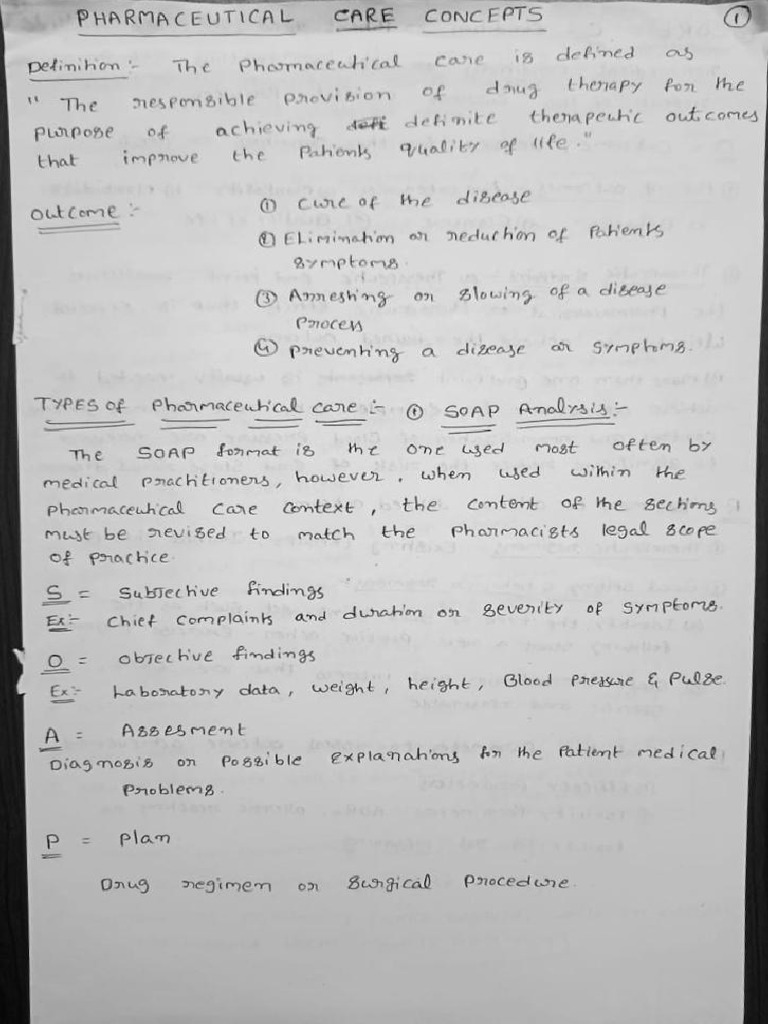 PHARMACEUTICAL CARE CONCEPTS ①
Definition :- The Pharmaceutical care is defined as
" The responsible provision of drug therapy for the
purpose of achieving definite therapeutic outcomes
that improve the Patients quality of life."
Outcome :- ① Cure of the disease
② Elimination or reduction of Patients
symptoms.
③ Arresting or slowing of a disease
Process
④ preventing a disease or symptoms.
TYPES of Pharmaceutical care :- ① SOAP Analysis :-
The SOAP format is the one used most often by
medical practitioners, however, when used within the
pharmaceutical care context, the content of the sections
must be revised to match the pharmacists legal scope
of practice.
S = Subjective findings
Ex:- Chief complaints and duration or severity of symptoms.
O = objective findings
Ex:- Laboratory data, weight, height, Blood pressure & Pulse.
A = Assesment
Diagnosis or Possible explanations for the Patient medical
Problems.
P = Plan
Drug regimen or surgical Procedure.